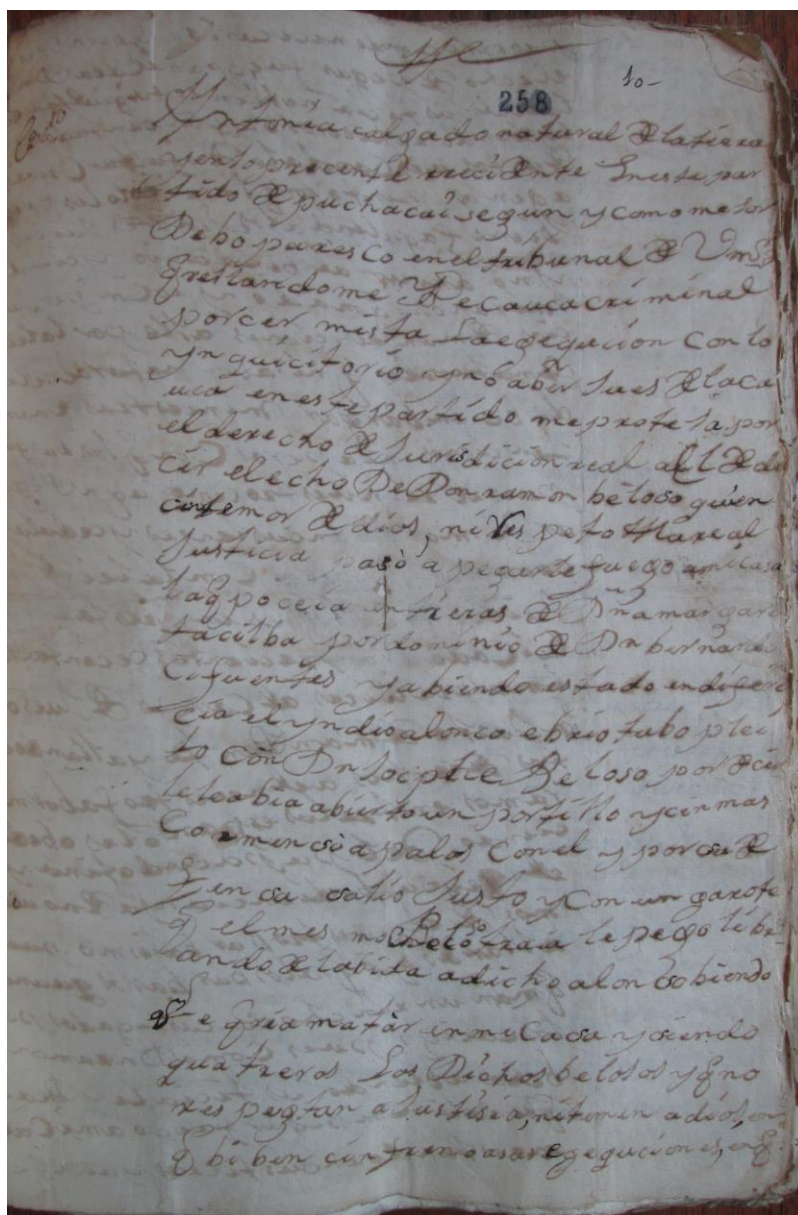 10-
258
Antonia calgado natural de la tiera
y ento precente recidente En este par
tido de puchacai segun y como me for
Debo paresco en el tribunal de Vmd
qrellandome De cauca criminal
por cer mista la egegucion con lo
ynquicitorio y no aber Jues de la ca
uca en este partido me protesta por
el derecho de Jurisdicion real al de du
cir el echo De Don ramon beloso quien
cintemor de dios, ni Respeto a la real
Justicia pasò a pegarle fuego a mi casa
la q pocecia en tieras de Dña margari
ta cilba por dominio de Dn bernardo
Cifuentes y abiendo estado en diferen
cia el yndio alonco ebrio tubo plei
to con Dn Jocphe Beloso por deci
le le abia abierto un portillo y cin mas
Comensò a palos con el y por cu de
fenca calio Justo y con un garote
q el mesmo Beloso traia le pego libr
ando de la bida a dicho alonco biendo
Se qria matar en mi Caca y ciendo
quatreros Los Dichos belosos y q no
respegtan a Justisia, ni temen a dios, en
q biben cin freno a sus egeguciones, en q